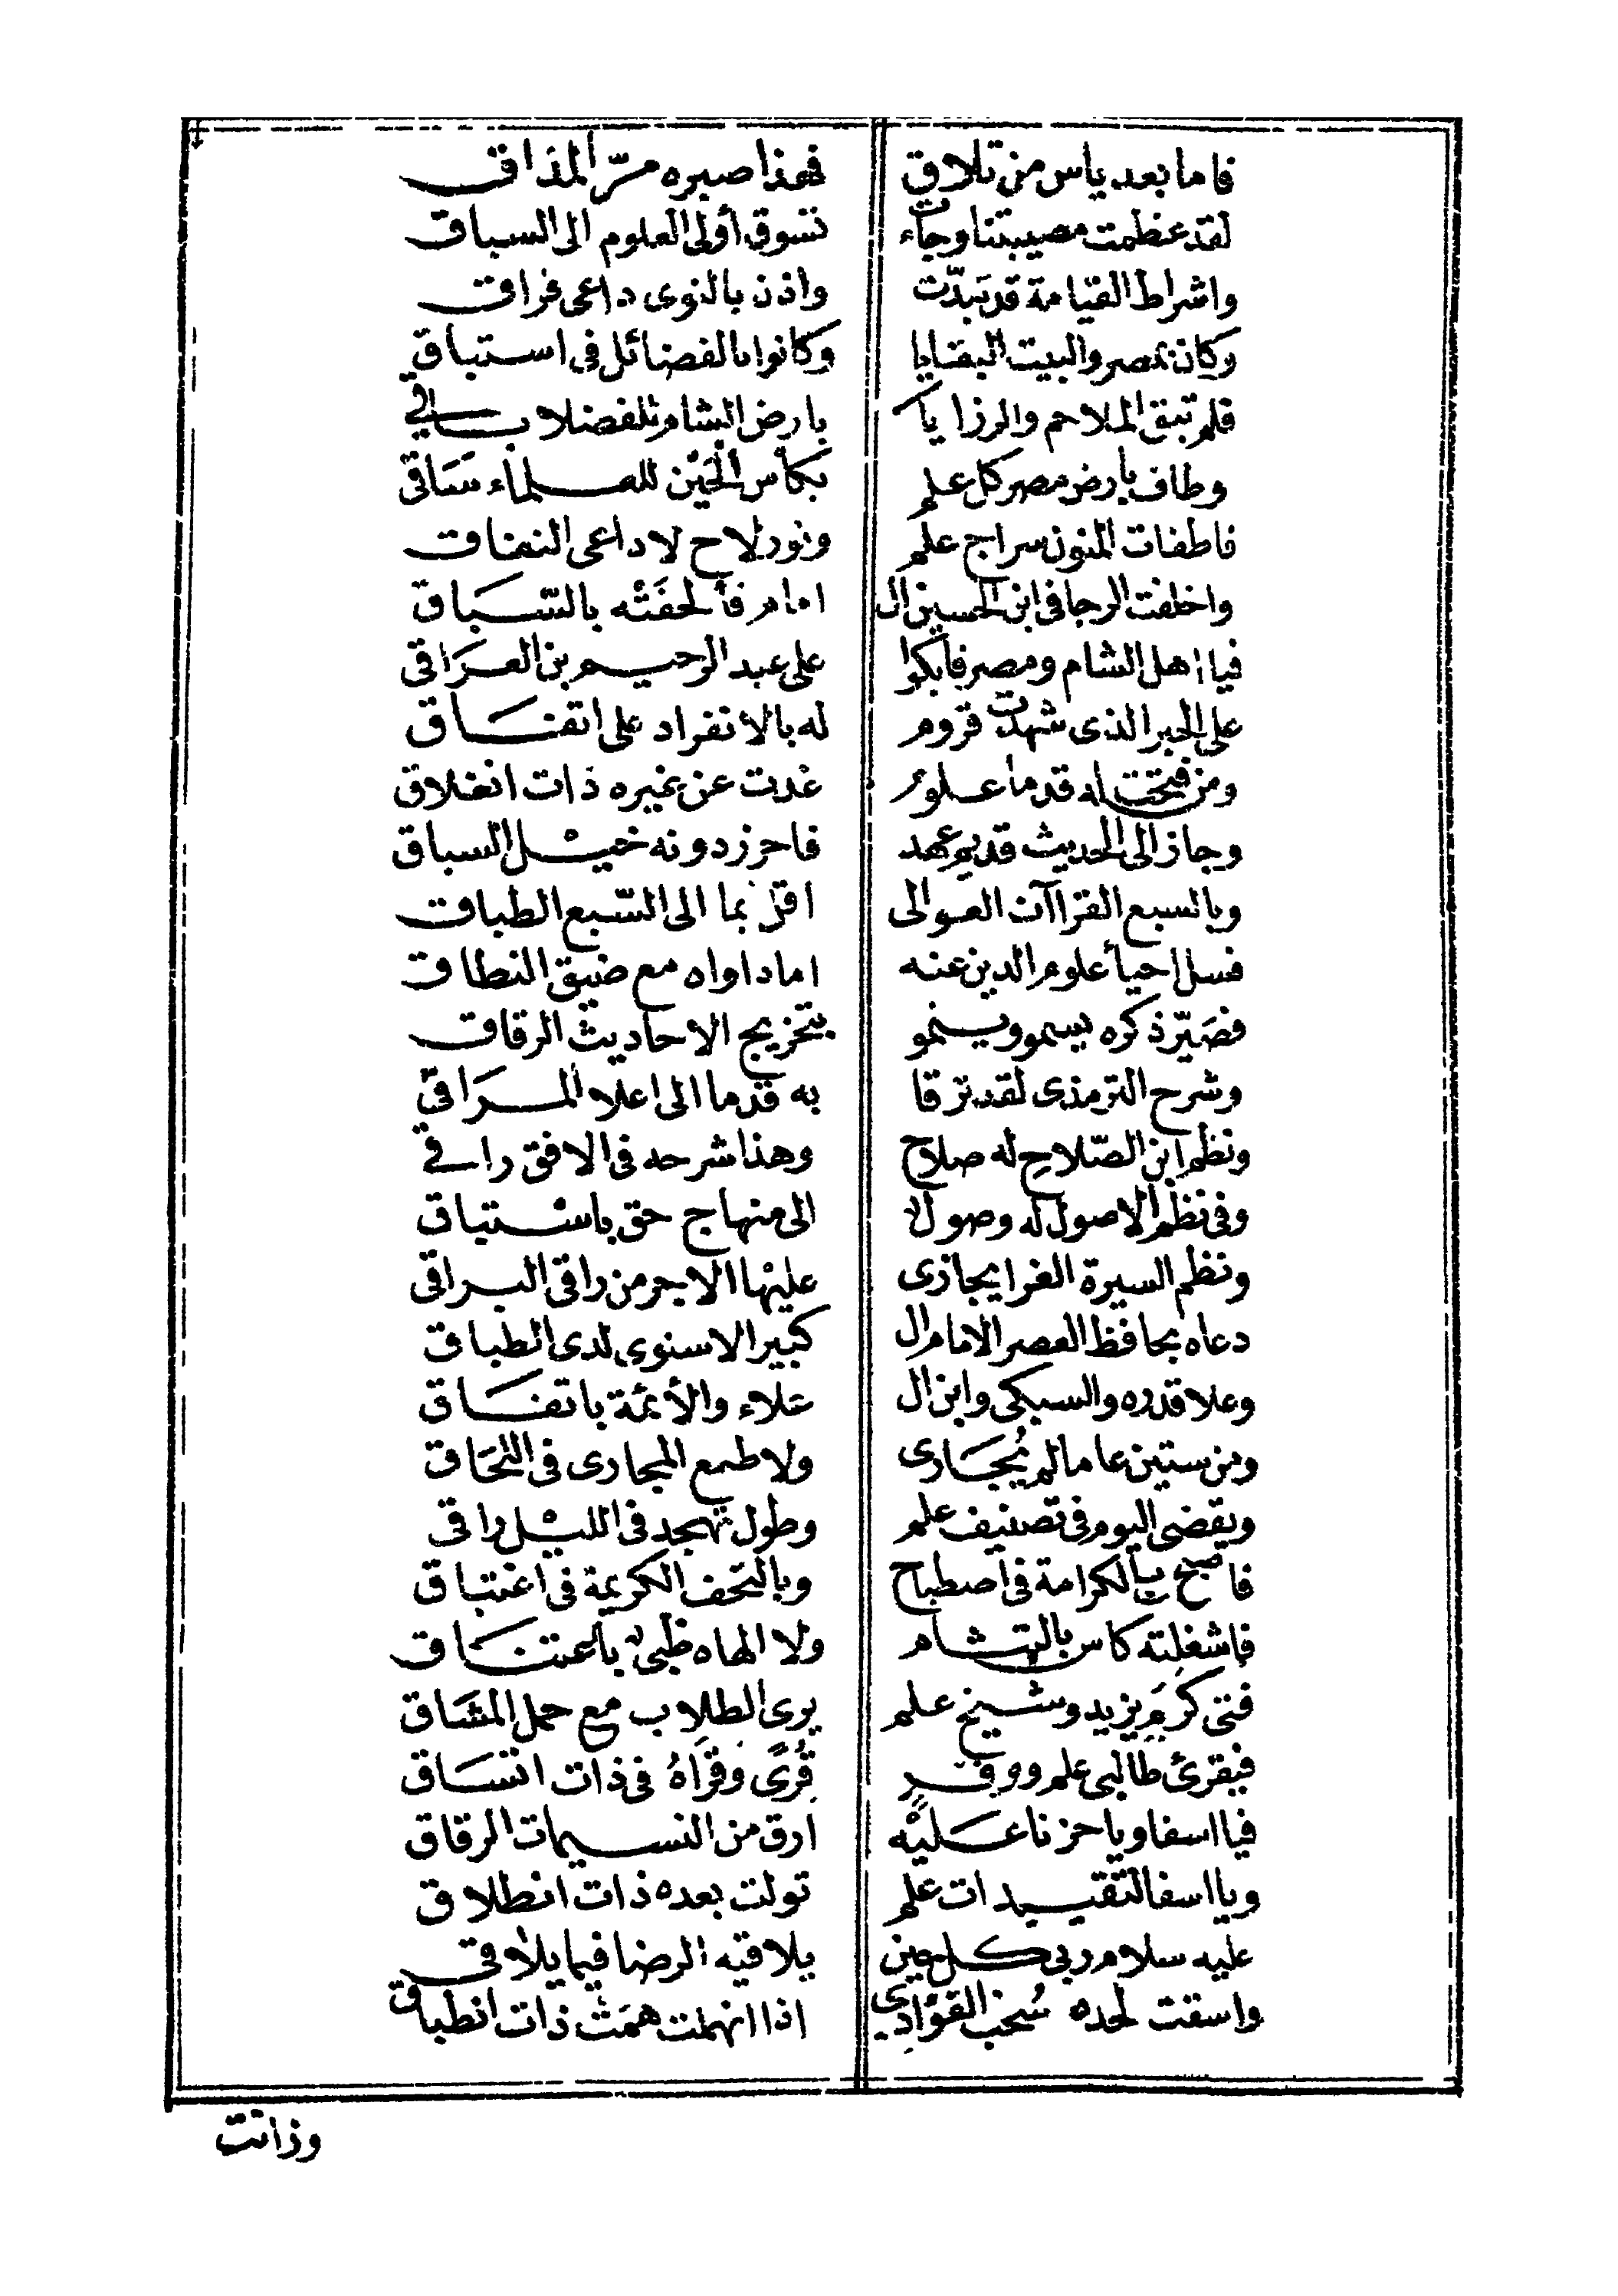 فاما بعد ياس من تلاق فهذا صبره مرّ المذاق
لقد عظمت مصيبتنا وجاءت تسوق أولى العلوم الى السباق
واشراط القيامة قد تبدّت واذن بالنوى داعى فراق
وكان بمصر والبيت البقايا وكانوا بالفضائل فى استباق
فلم تبق الملاحم والرزايا بارض الشام للفضلا باقي
وطاف بارض مصر كل علم بكأس الحَيْن للعلماء سَاقى
فاطفات المنون سراج علم ونور لاح لا داعى النفاق
واخلفت الرجا فى ابن الحسين ال امام فألحقَتْه بالسّباق
فيا اهل الشام ومصر فابكوا على عبد الرحيم بن العَرَاقى
على الحبر الذى شهدت قروم له بالانفراد على اتفَاق
ومن فتحت له قدما علوم غدت عن غيره ذات انغلاق
وجاز الى الحديث قديم عهد فاحرز دونه خيْل السباق
وبالسبع القراآت العوالى اقرّ بما الى السّبع الطباق
فسل احيأ علوم الدين عنه اما داواه مع ضيق النطاق
فصَيّر ذكره يسمو وينمو بتخريج الاحاديث الرقاق
وشرح الترمذى لقد ترقا به قدما الى اعلا المَراقيّ
ونظم ابن الصّلاح له صلاح وهذا شرحه فى الافق راقي
وفى نظم الاصول له وصول الى منهاج حق باسْتباق
ونظم السيرة الغرا يجازى عليها الاجر من راقى البراقى
دعاه بحافظ العصر الامام ال كبير الاسنوى لدى الطباق
وعلا قدره والسبكى وابن ال علاء والأئمة باتفَاق
ومن ستين عاما لم يُجَارى ولا طمع المجارى فى اللحَاق
ويقضى اليوم فى تصنيف علم وطول تهجد فى الليْل راقى
فاصبح بالكرامة فى اصطباح وبالتحف الكريمة فى اغتباق
فاشغلته كاس بالتشام ولا الهاه ظبى باعتنَاق
فتى كرَمٍ يزيد وشيخ علم يرى الطلاب مع حمل المشَاق
فيقرئ طالبى علم ووفرٍ قُرًى وقرَاهُ فى ذات اتسَاق
فيا اسفا ويا حزنا عَليْه ارق من النسيمات الرقاق
ويا اسفا لتقييدات علم تولت بعده ذات انطلاق
عليه سلام ربى كل حين يلاقيه الرضا فيما يلاقى
واسقت لحده سُحب الغوادى اذا انهلت همَتْ ذات انطباق
وذاتت